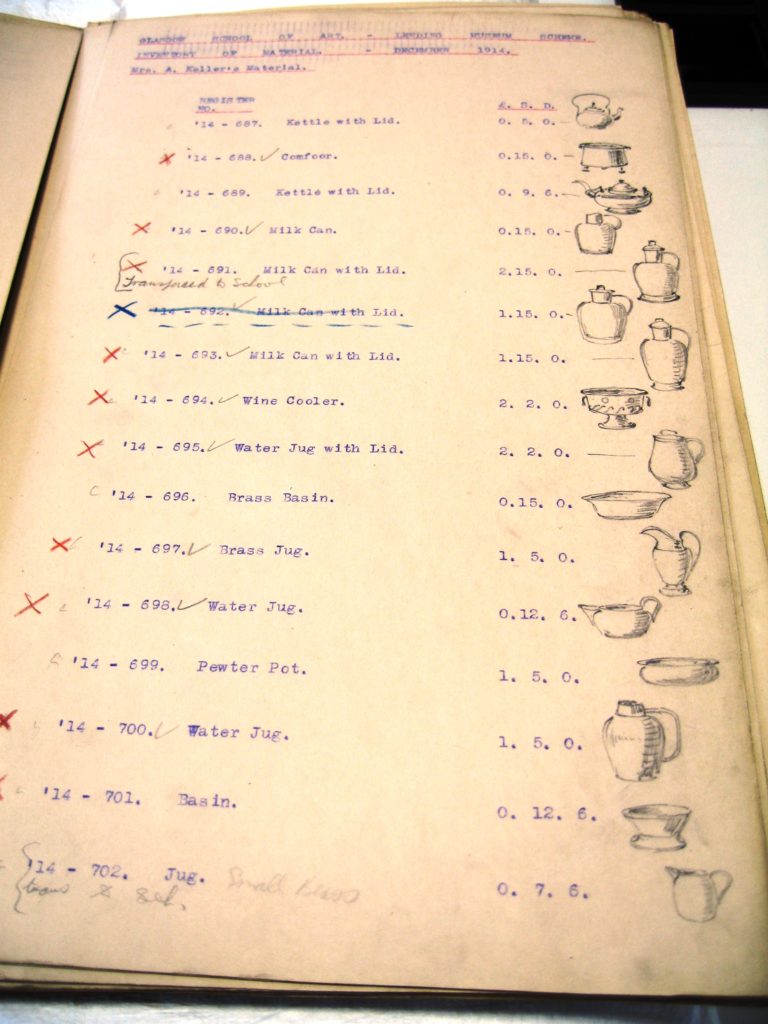 GLASGOW SCHOOL OF ART. - LENDING MUSEUM SCHEME.
INVENTORY OF MATERIAL. - DECEMBER 1914.
Mrs. A. Keller's Material.
REGISTER NO. £. S. D.
'14 - 687. Kettle with Lid. 0. 5. 0.
'14 - 688. Comfoor. 0.15. 0.
'14 - 689. Kettle with Lid. 0. 9. 6.
'14 - 690. Milk Can. 0.15. 0.
'14 - 691. Milk Can with Lid. 2.15. 0.
Transferred to School
'14 - 692. Milk Can with Lid. 1.15. 0.
'14 - 693. Milk Can with Lid. 1.15. 0.
'14 - 694. Wine Cooler. 2. 2. 0.
'14 - 695. Water Jug with Lid. 2. 2. 0.
'14 - 696. Brass Basin. 0.15. 0.
'14 - 697. Brass Jug. 1. 5. 0.
'14 - 698. Water Jug. 0.12. 6.
'14 - 699. Pewter Pot. 1. 5. 0.
'14 - 700. Water Jug. 1. 5. 0.
'14 - 701. Basin. 0. 12. 6.
'14 - 702. Jug. Small Brass 0. 7. 6.
trans to Sch.